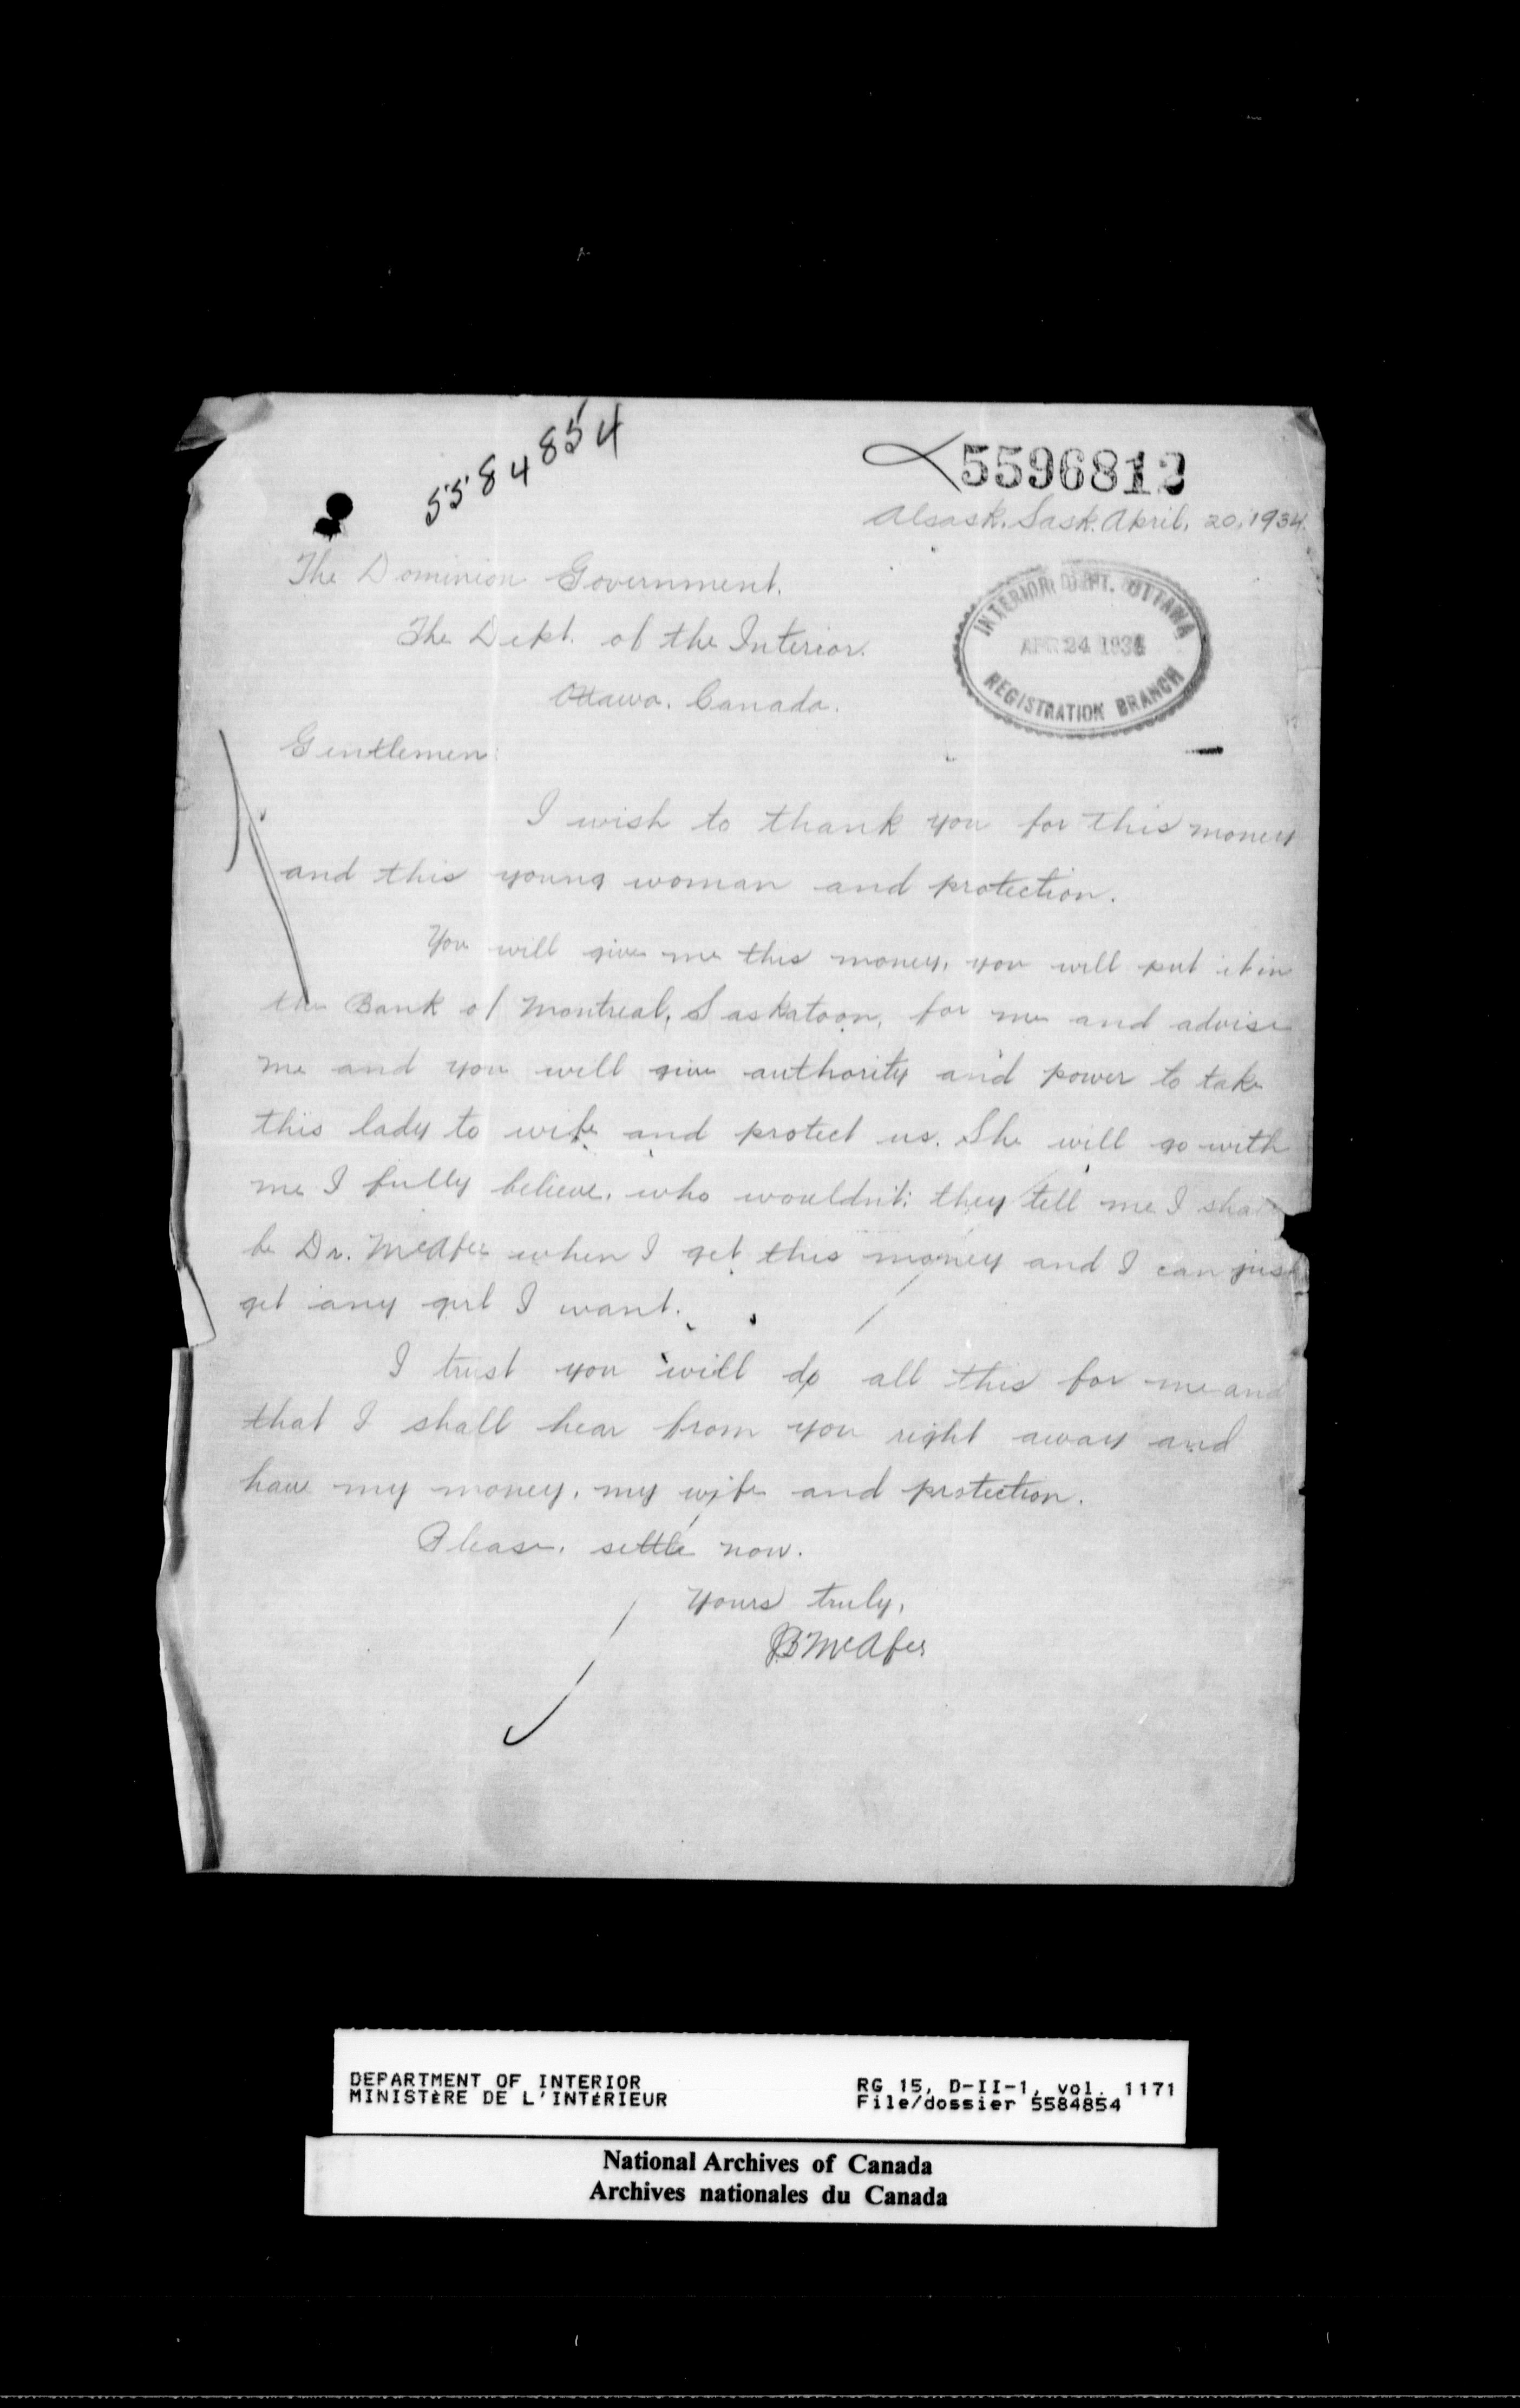 5584854
5596812
Alsask, Sask. April, 20, 1934.
The Dominion Government.
The Dept. of the Interior.
Ottawa. Canada.
INTERIOR DEPT. OTTAWA
APR 24 1934
REGISTRATION BRANCH
Gentlemen:
I wish to thank you for this money
and this young woman and protection.
You will give me this money, you will put it in
the Bank of Montreal, Saskatoon, for me and advise
me and you will give authority and power to take
this lady to wife and protect us. She will go with
me I fully believe, who wouldn't; they tell me I shall
be Dr. McAfee when I get this money and I can just
get any girl I want.
I trust you will do all this for me and
that I shall hear from you right away and
have my money, my wife and protection.
Please, settle now.
Yours truly,
JB McAfee
DEPARTMENT OF INTERIOR
MINISTÈRE DE L'INTÉRIEUR
RG 15, D-II-1, vol. 1171
File/dossier 5584854
National Archives of Canada
Archives nationales du Canada